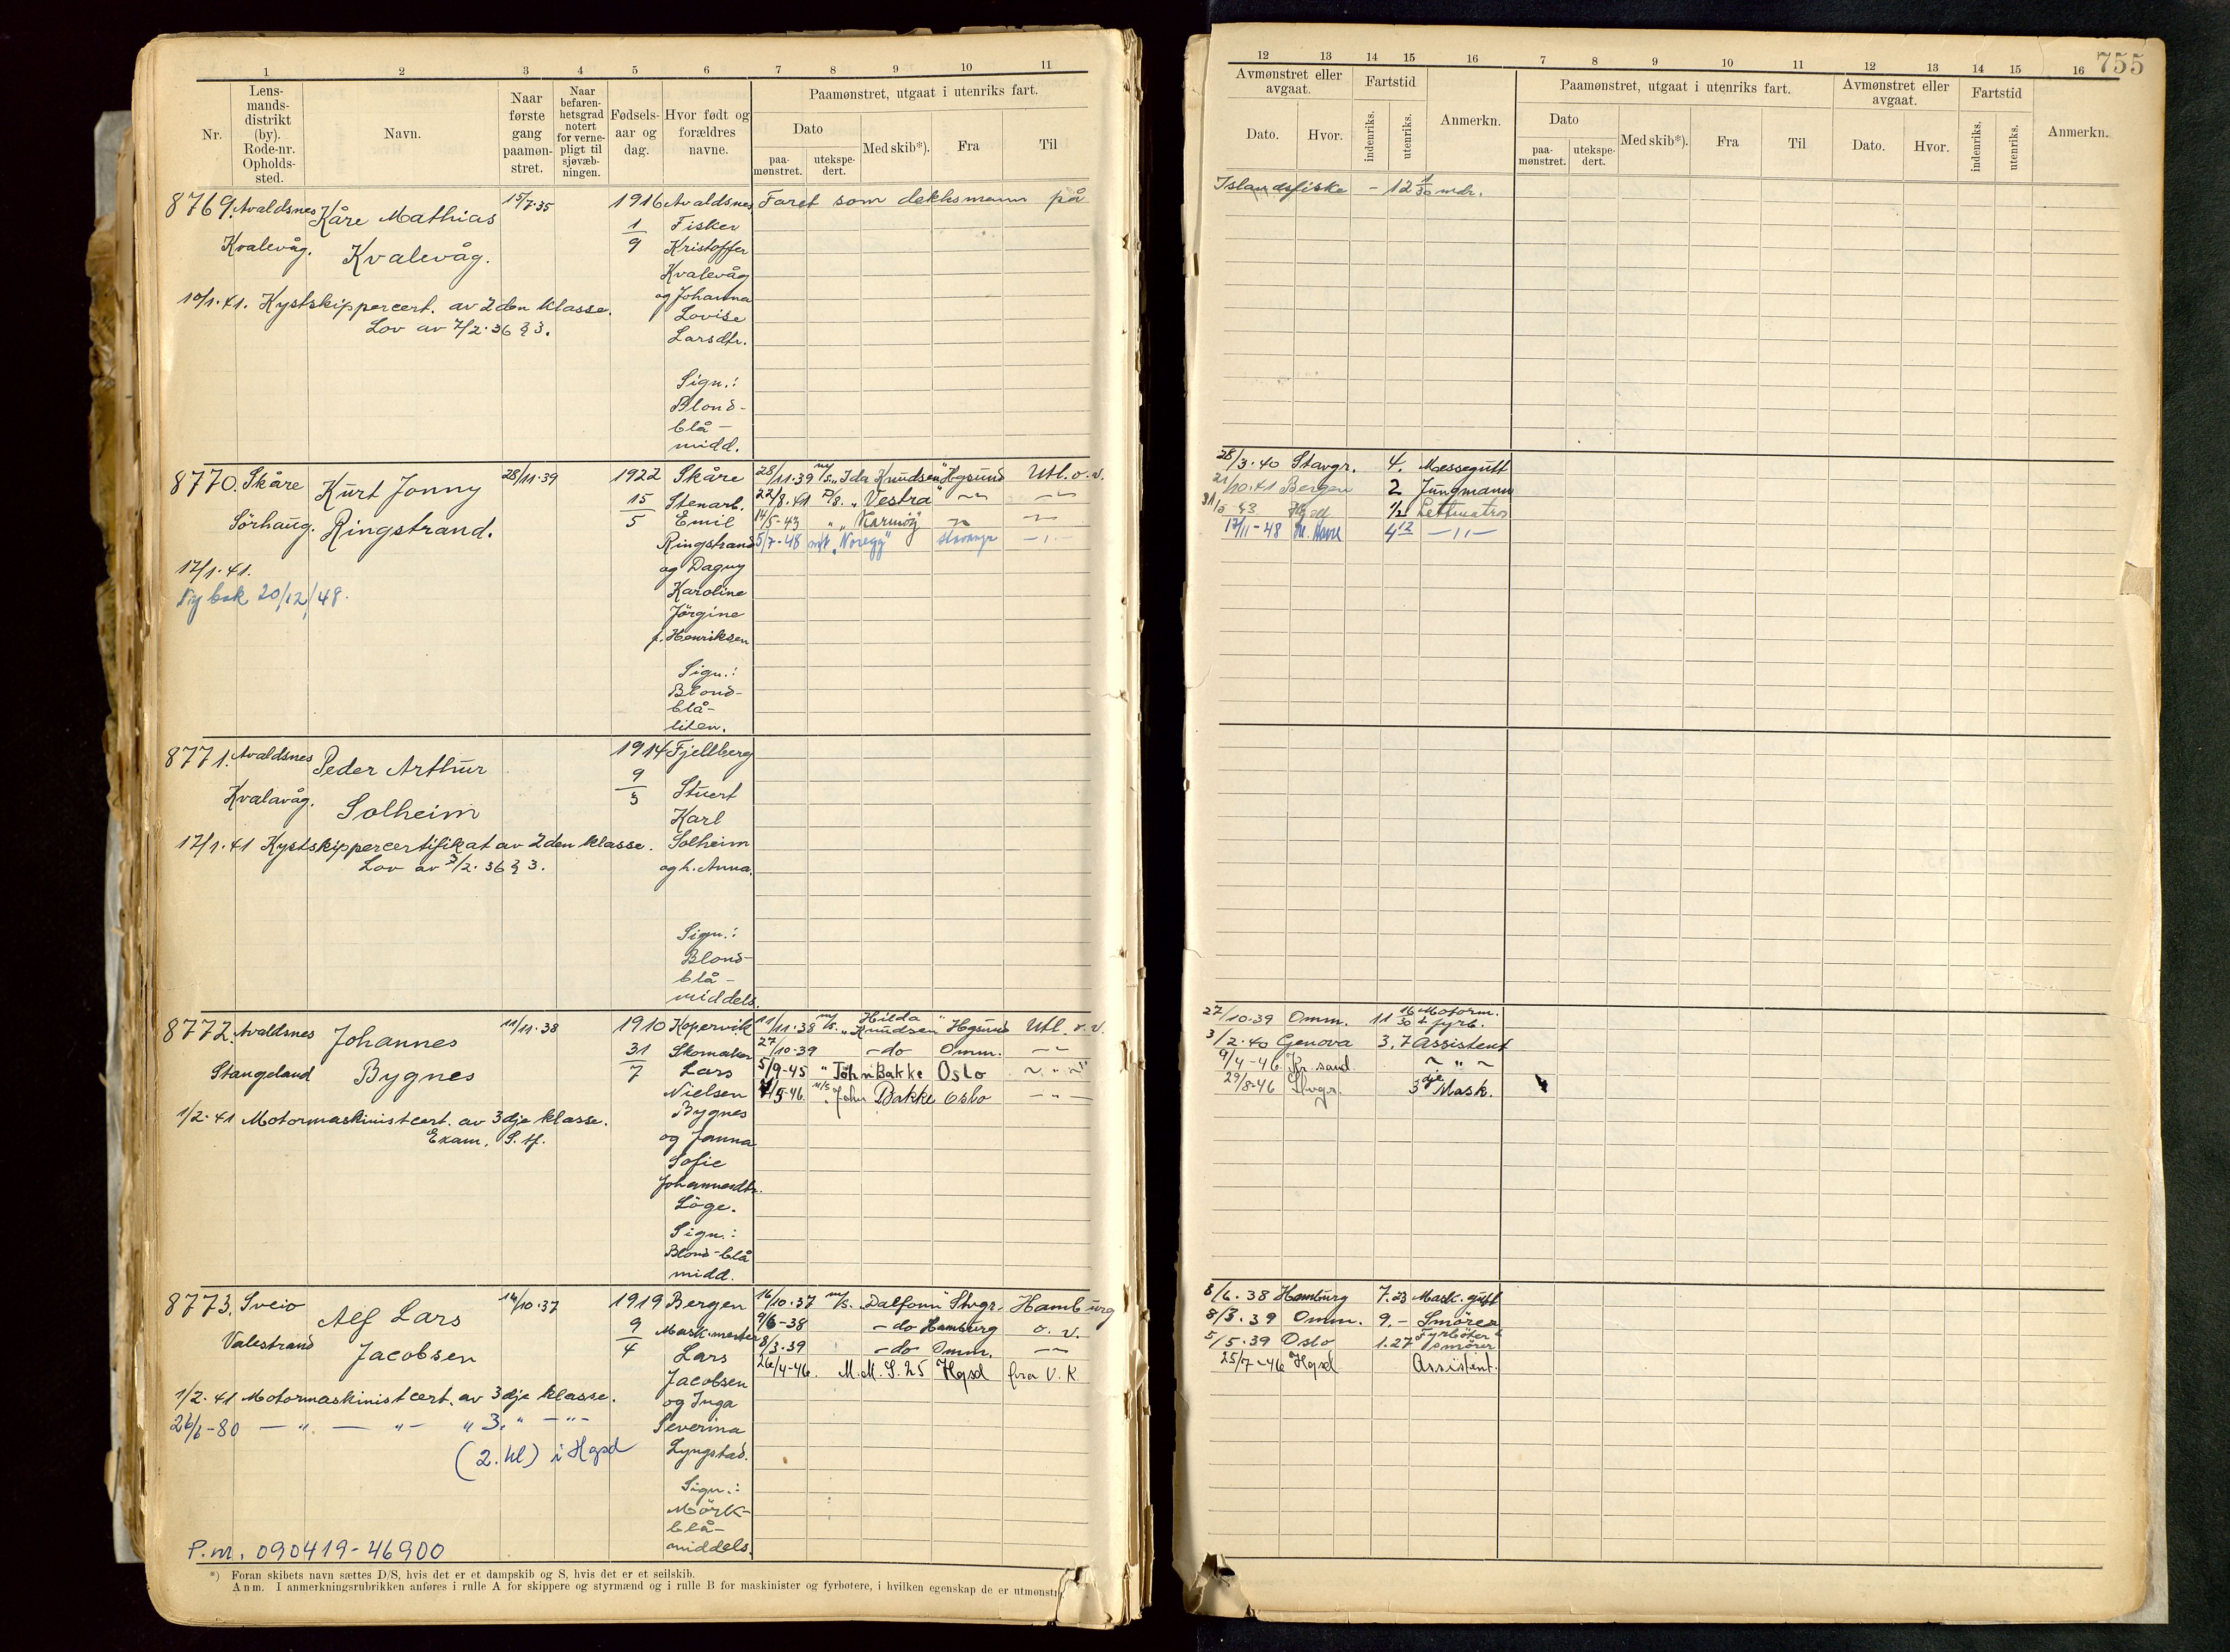 755
1 2 3 4 5 6 7 8 9 10 11
Nr.
Lens-
mands-
distrikt
(by).
Rode-nr.
Opholds-
sted.
Navn.
Naar
første
gang
paamøn-
stret.
Naar
befaren-
hetsgrad
notert
for verne-
pligt til
sjøvæb-
ningen.
Fødsels-
aar og
dag.
Hvor født og
forældres
navne.
Paamønstret, utgaat i utenriks fart.
Dato
paa-
mønstret.
utekspe-
dert.
Med skib*).
Fra
Til
12 13 14 15 16 7 8 9 10 11 12 13 14 15 16
Avmønstret eller
avgaat.
Dato.
Hvor.
Fartstid
indenriks.
utenriks.
Anmerkn.
Paamønstret, utgaat i utenriks fart.
Dato
paa-
mønstret.
utekspe-
dert.
Med skib*).
Fra
Til
Avmønstret eller
avgaat.
Dato.
Hvor.
Fartstid
indenriks.
utenriks.
Anmerkn.
8769. Avaldsnes
Kvalevåg.
Kåre Mathias
Kvalevåg.
15/7.35
1916
1/9
Avaldsnes
Fisker
Kristoffer
Kvalevåg
og Johanna
Lovise
Larsdtr.
Sign.:
Blond-
blå-
midd.
Faret som dekksmann på
Islandsfiske - 12 1/30 mdr.
10/1.41. Kystskippercert. av 2den klasse.
Lov av 7/2.36 § 3.
8770. Skåre
Sörhaug.
Kurt Jonny
Ringstrand.
28/11.39
1922
15/5
Skåre
Stenarb.
Emil
Ringstrand
og Dagny
Karoline
Jörgine
f. Henriksen
Sign.:
Blond-
blå-
liten.
28/11.39 m/s. "Ida Knudsen" Hgsund Utl. o. v.
22/8.41 D/S. "Vestra" -"- -"-
14/5-43 " "Karmöy" -"- -"-
5/7-48 m/t "Noregg" Stavangr -"-
28/3.40 Stavgr. 4. Messegutt
21/10.41 Bergen 2 Jungmann
31/5-43 1/2 Lettmatros
17/11-48 4 12 -"-
17/1.41.
Ny bok 20/12/48.
8771. Avaldsnes
Kvalavåg.
Peder Arthur
Solheim
1914
9/3
Fjellberg
Stuert
Karl
Solheim
og h. Anna.
Sign.:
Blond-
blå-
middels.
17/1.41 Kystskippercertifikat av 2den klasse.
Lov av 7/2.36 § 3.
8772. Avaldsnes
Stangeland
Johannes
Bygnes
11/11.38
1910
31/7
Kopervik
Skomaker
Lars
Nielsen
Bygnes
og Janna
Sofie
Johannesdtr.
Löge.
Sign.:
Blond-blå
midd.
11/11.38 m/s. "Hilda Knudsen" Hgsund Utl. o. v.
27/10.39 -do Omm. -"-
5/9-45 " John Bakke Oslo -"-
/5-46. m/s "John Bakke Oslo -"-
27/10.39 Omm. 11 16/30 Motorm. + fyrb.
3/2.40 Genova 3.7 Assistent
9/4-46 Kr.sand -"-
29/8-46 Stvgr. 3dje Mask.
1/2.41 Motormaskinistcert. av 3dje klasse.
Exam. S. tf.
8773. Sveio
Valestrand
Alf Lars
Jacobsen
14/10.37
1919
9/4
Bergen
Mask.mester
Lars
Jacobsen
og Inga
Severina
Lyngstad.
Sign.:
Mörk-
blå-
middels.
16/10.37 m/s. "Dalfonn" Stvgr. Hamburg
9/6-38 -do Hamburg o. v.
8/3.39 -do Omm. -"-
26/4-46. M.M.S. 25 Hgsd fra U.K.
8/6.38 Hamburg 7.23 Mask.gutt
8/3.39 Omm. 9.- Smörer
5/5.39 Oslo 1.27 Fyrböter & smörer
25/7-46 Hgsd Assistent.
1/2.41 Motormaskinistcert. av 3dje klasse.
26/6-80 - " - " - " 3. " - " -
(2. kl) i Hgsd
P.nr. 090419-46900
*) Foran skibets navn sættes D/S, hvis det er et dampskib og S, hvis det er et seilskib.
Anm. I anmerkningsrubrikken anføres i rulle A for skippere og styrmænd og i rulle B for maskinister og fyrbøtere, i hvilken egenskap de er utmønstr